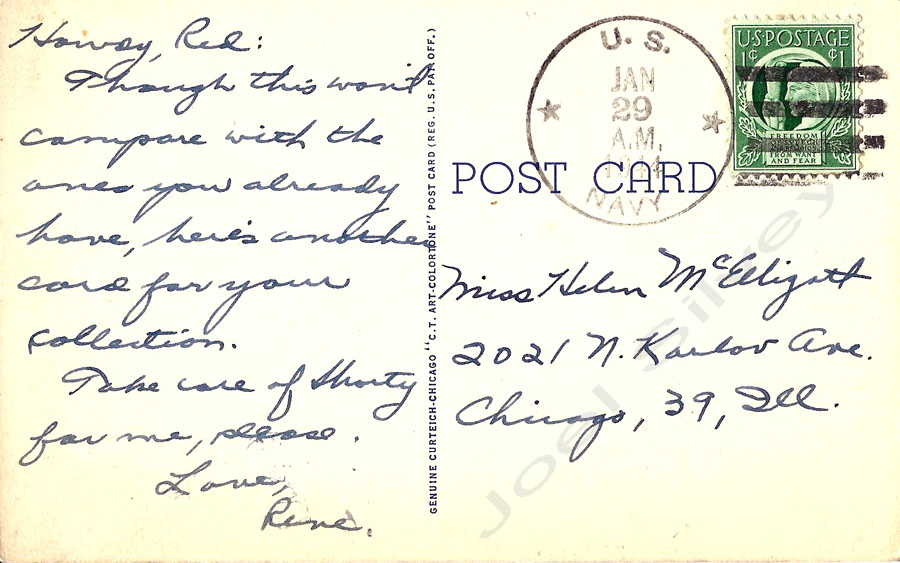 Howdy, Red:
Though this won't
compare with the
ones you already
have, here's another
card for your
collection.
Take care of Shorty
for me, please.
Love,
Rene.
GENUINE CURTEICH-CHICAGO "C.T. ART-COLORTONE" POST CARD (REG. U.S. PAT. OFF.)
U. S.
JAN
29
A.M.
1944
NAVY
U.S. POSTAGE
1¢ ¢1
FREEDOM
OF SPEECH
AND RELIGION,
FROM WANT
AND FEAR
POST CARD
Miss Helen McElligott
2021 N. Karlov Ave.
Chicago, 39, Ill.
Joel Silvey